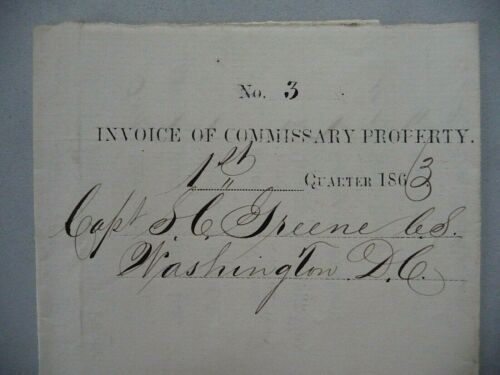 No. 3
INVOICE OF COMMISSARY PROPERTY.
1st QUARTER 1863
Capt S. C. Greene C.S.
Washington D.C.